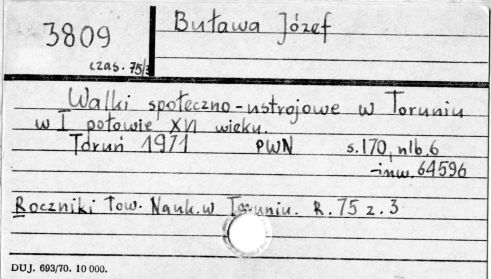 3809
czas. 75/3
Buława Józef
Walki społeczno-ustrojowe w Toruniu
w I połowie XVI wieku.
Toruń 1971 PWN s.170, nlb.6
-inw. 64596
Roczniki Tow. Nauk. w Toruniu. R. 75 z. 3
DUJ. 693/70. 10 000.